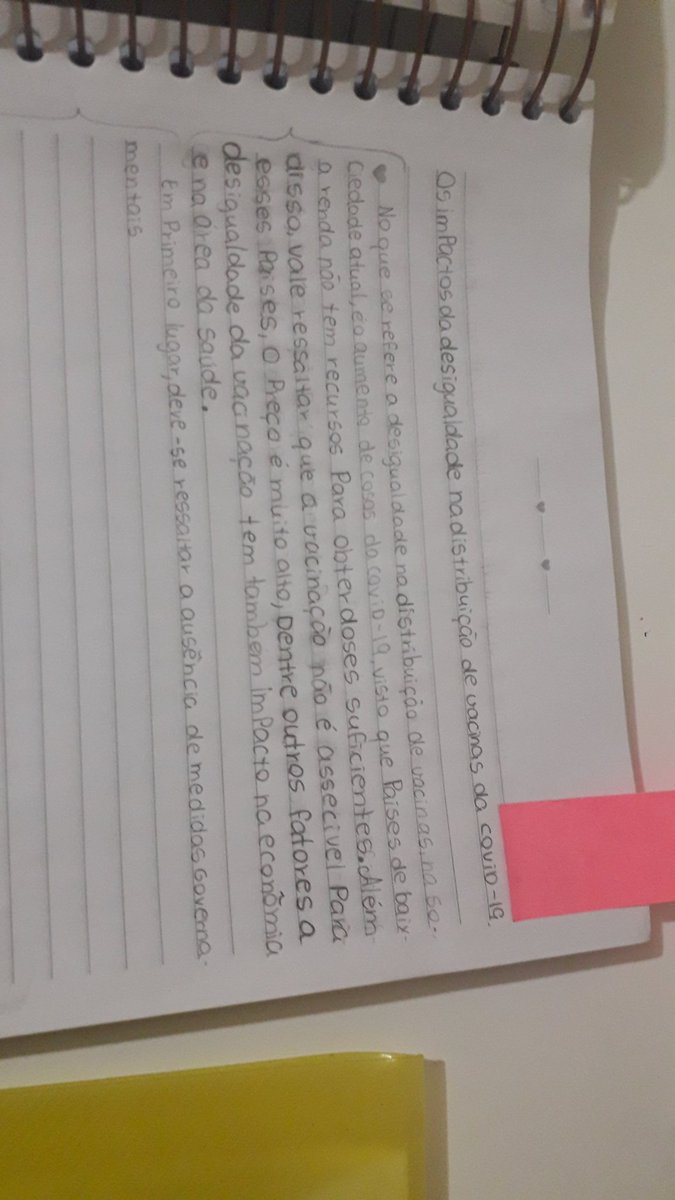 Os imPactos da desigualdade na distribuição de vacinas da coviD-19.
No que se refere a desigualdade na distribuição de vacinas, na so-
ciedade atual, e o aumento de casos da coviD-19, visto que Países de baix-
a renda não tem recursos Para obter doses suficientes. Além
disso, vale ressaltar que a vacinação não é assecivel Para
esses Países, o Preço é muito alto, Dentre outros fatores a
desigualdade da vacinação tem tambem imPacto na econômia
e na área da saúde.
Em Primeiro lugar, deve-se ressaltar a ausência de medidas Governa-
mentais